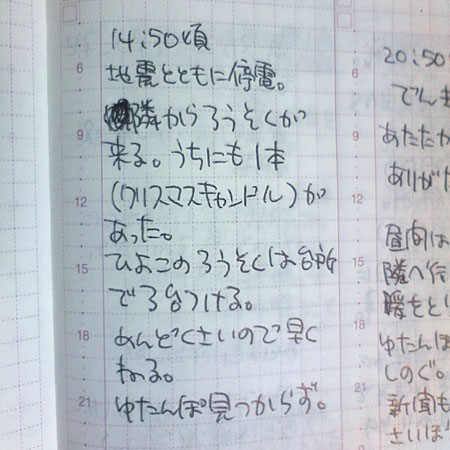 14:50頃
6
地震とともに停電。
隣からろうそくが
9
来る。うちにも1本
12
(クリスマスキャンドル)が
あった。
ひよこのろうそくは台所
15
で3台つける。
18
めんどくさいので早く
ねる。
21
ゆたんぽ見つからず。
20:50
6
でん
9
あたたか
ありがた
12
昼間は
15
隣へ行
暖をと
18
ゆたんぽ
しのぐ。
21
新聞も
さいぼ